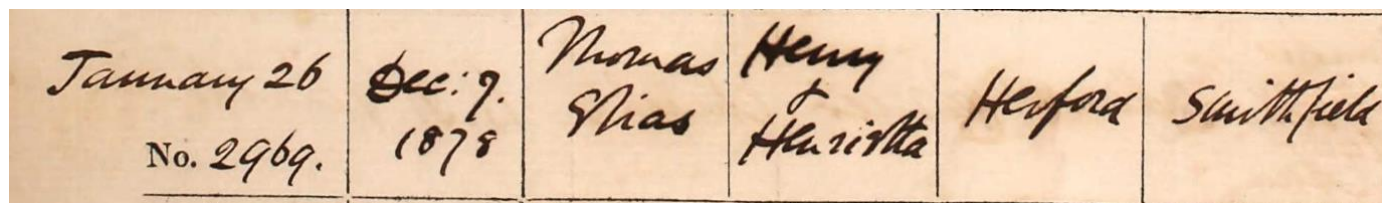 January 26
No. 2969.
Dec: 9.
1878
Thomas
Elias
Henry
&
Henrietta
Herford
Smithfield